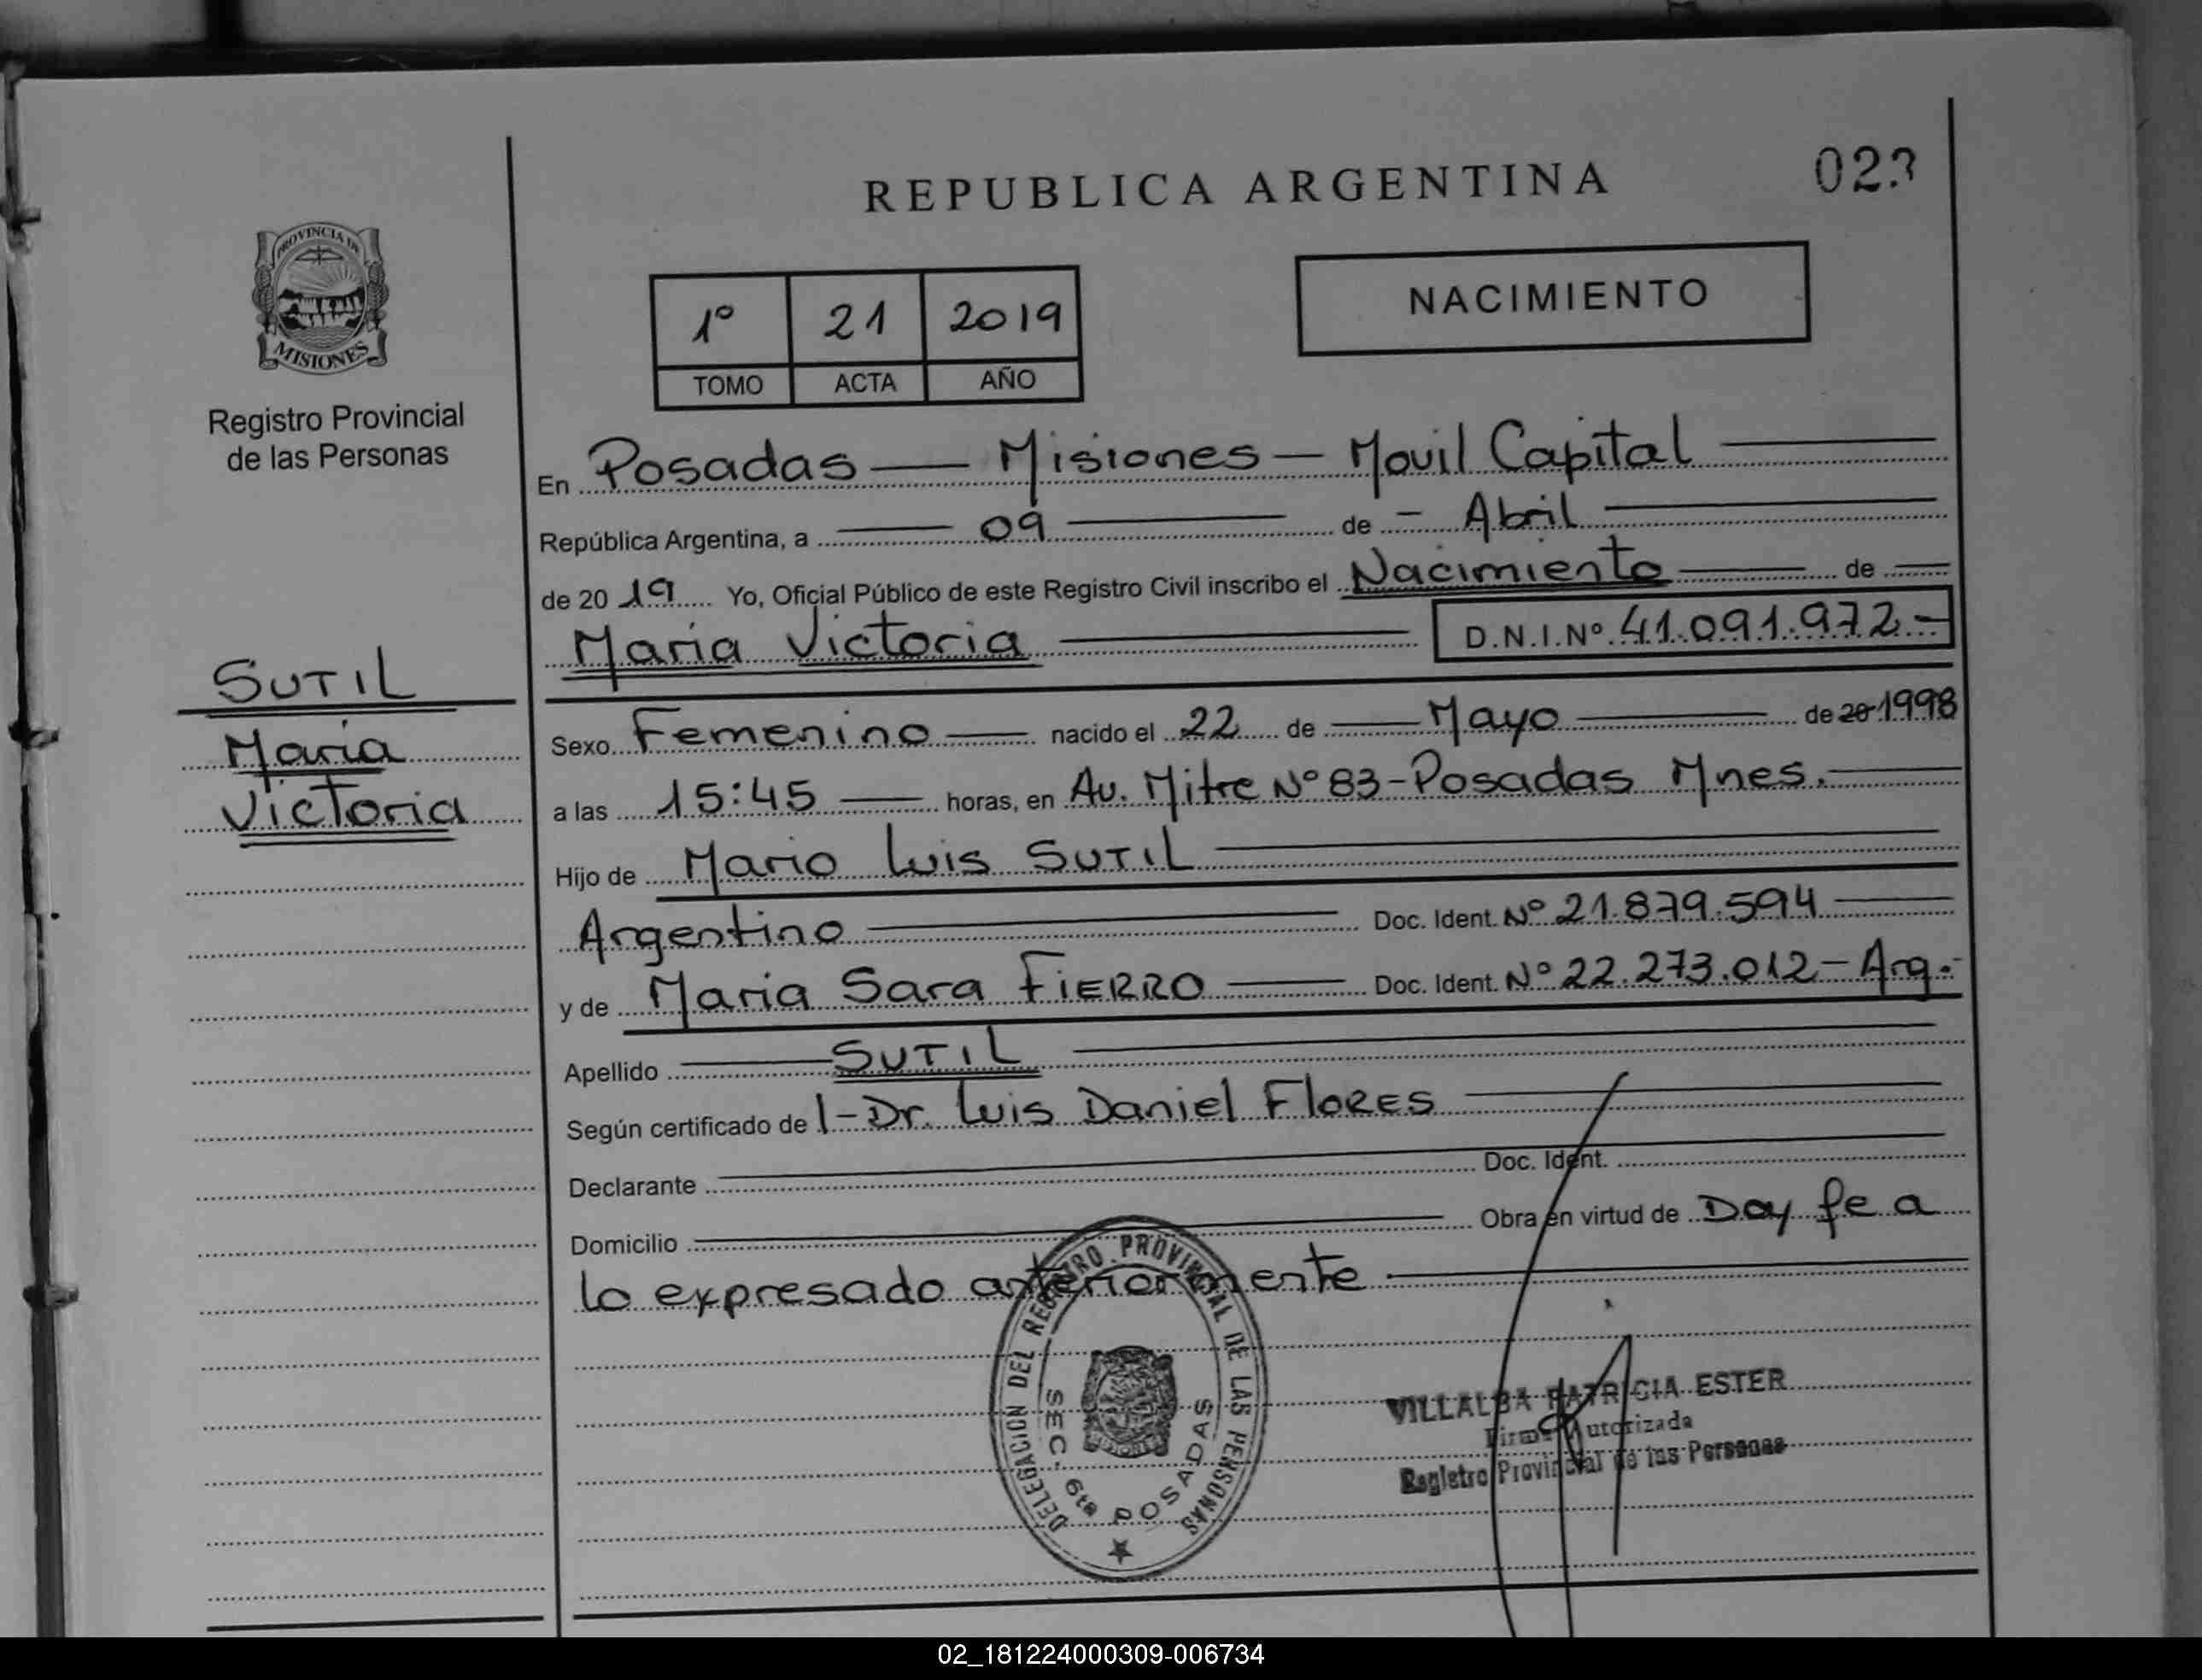 REPUBLICA ARGENTINA
023
PROVINCIA DE
MISIONES
Registro Provincial
de las Personas
1º 21 2019
TOMO ACTA AÑO
NACIMIENTO
En Posadas — Misiones — Movil Capital
República Argentina, a 09 de - Abril
de 20 19 Yo, Oficial Público de este Registro Civil inscribo el Nacimiento de
Maria Victoria D.N.I.Nº 41.091.972.-
SUTIL
Maria
Victoria
Sexo Femenino nacido el 22 de Mayo de 20 1998
a las 15:45 horas, en Av. Mitre Nº 83-Posadas Mnes.
Hijo de Mario Luis SUTIL
Argentino Doc. Ident. Nº 21.879.594
y de Maria Sara FIERRO Doc. Ident. Nº 22.273.012-Arg.-
Apellido SUTIL
Según certificado de l-Dr. Luis Daniel FloRES
Declarante Doc. Ident.
Domicilio Obra en virtud de Doy fe a
lo expresado anteriormente
DELEGACION DEL REGISTRO PROVINCIAL DE LAS PERSONAS
SEC. 6ta POSADAS
VILLALBA PATRICIA ESTER
Firma Autorizada
Registro Provincial de las Personas
02_181224000309-006734